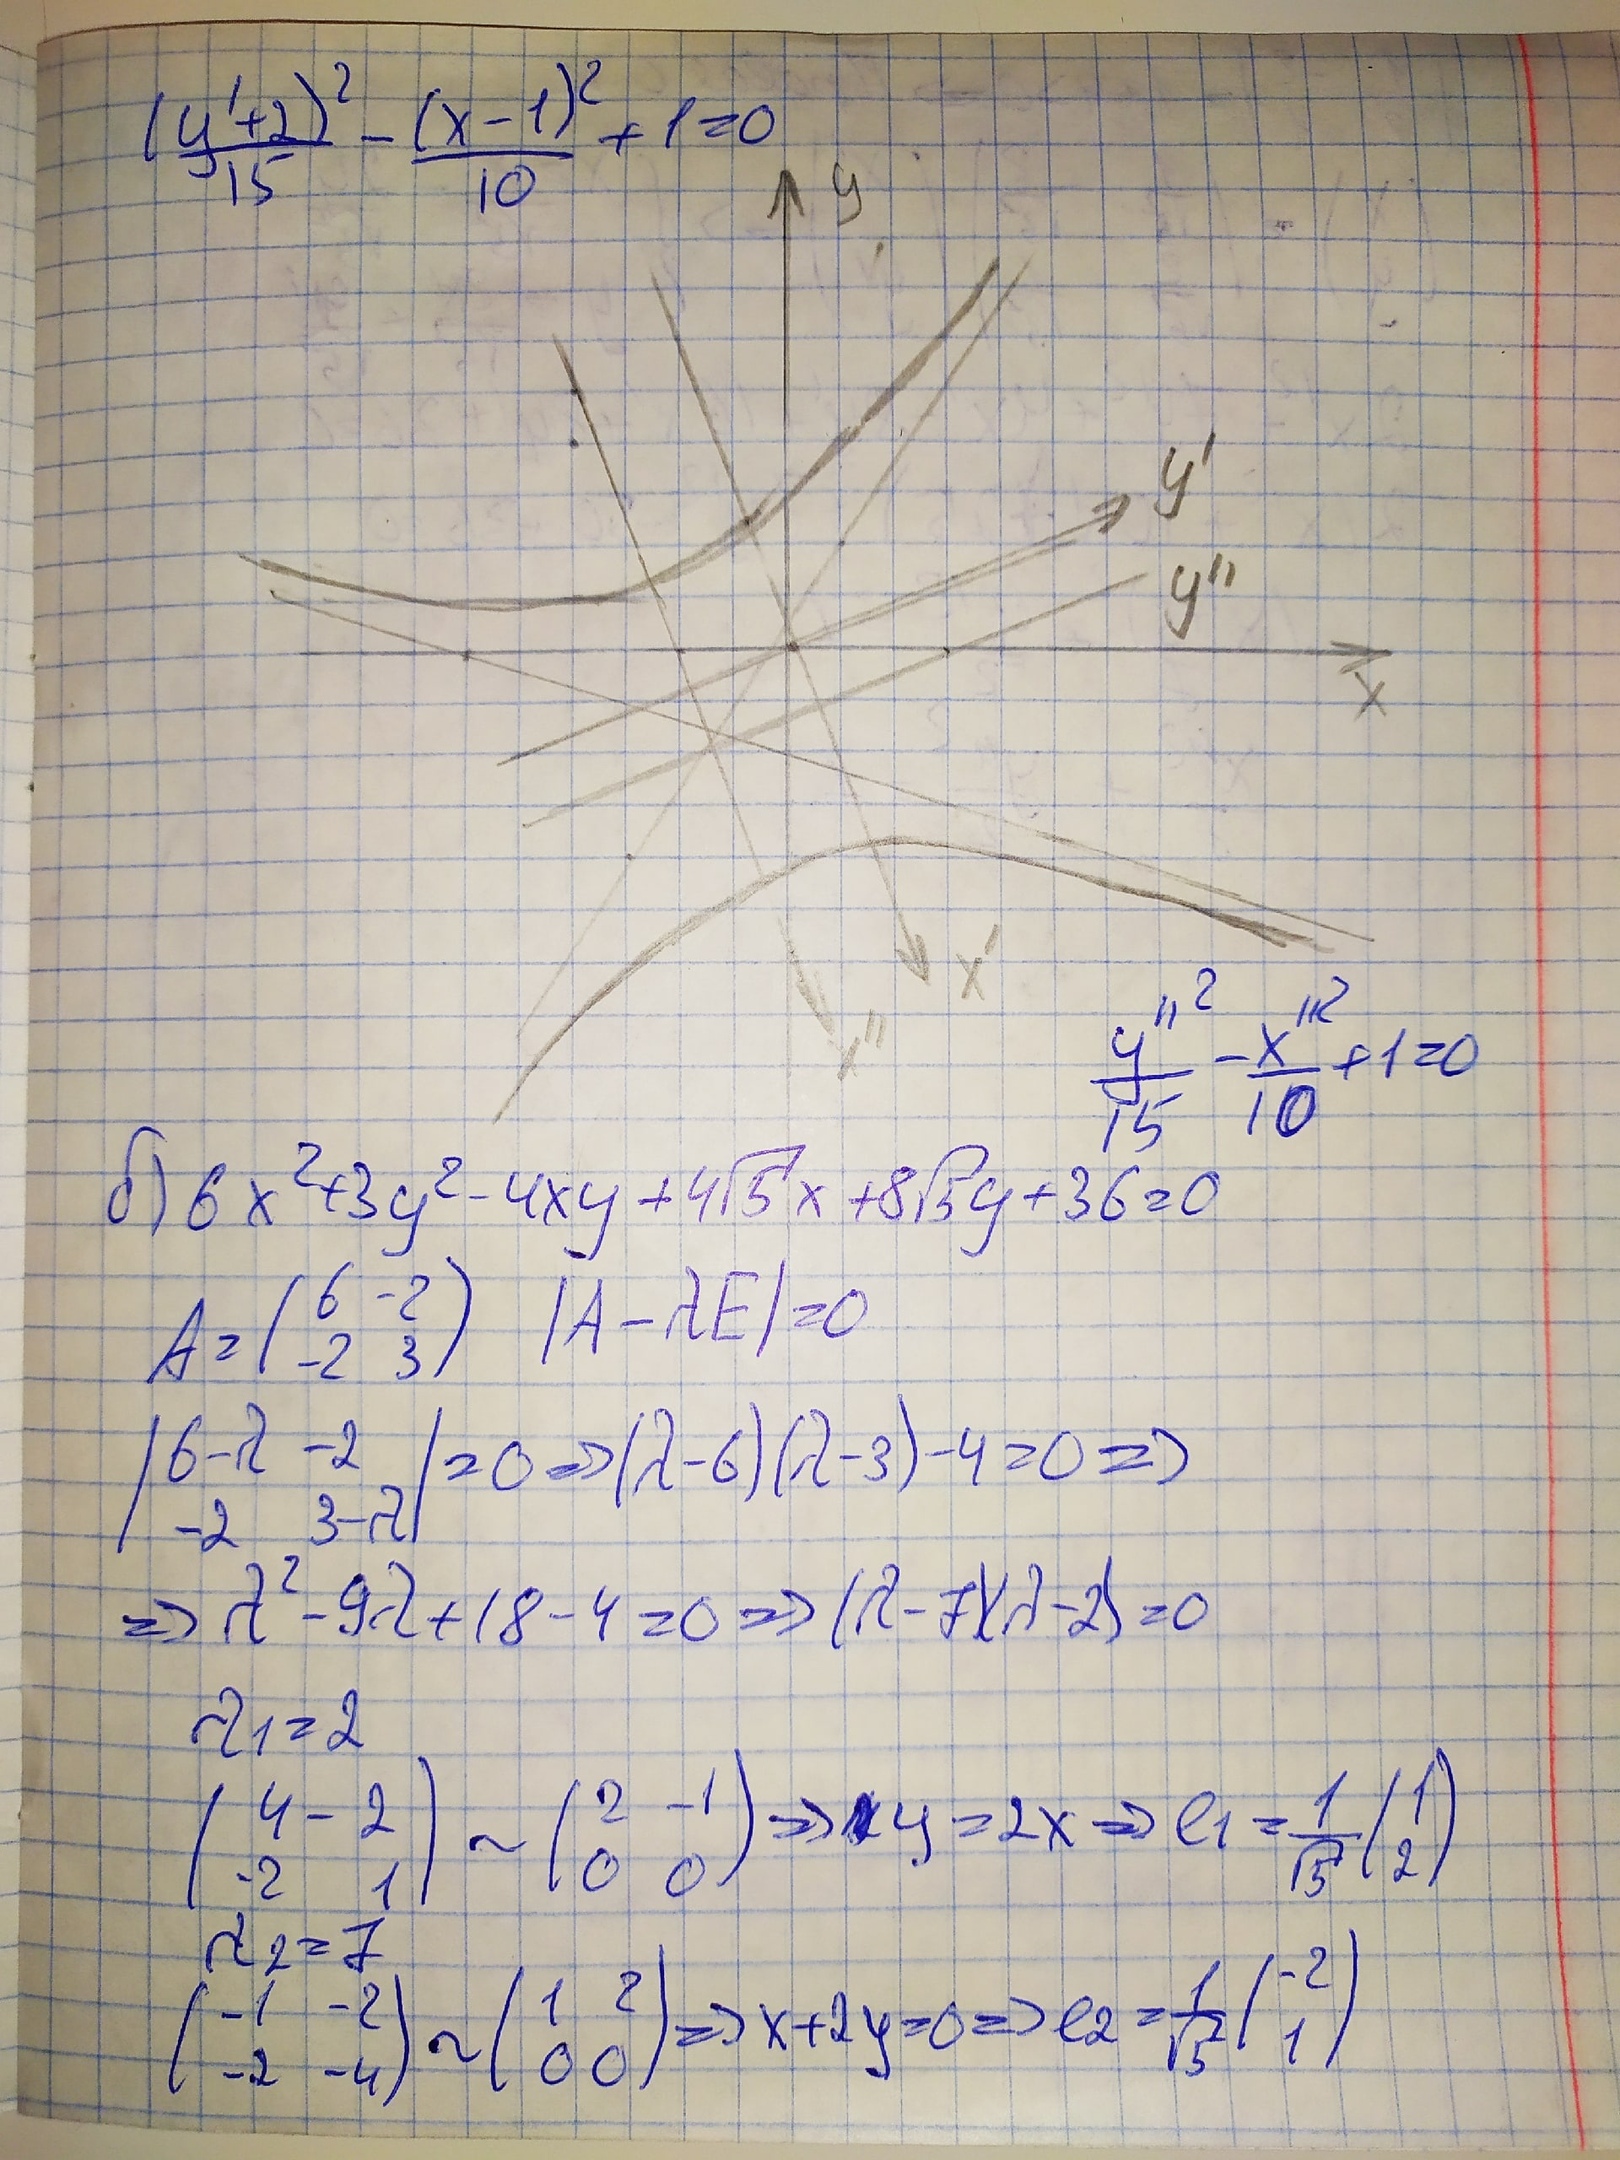 (y'+2)²/15 - (x-1)²/10 + 1=0
y
y'
y''
x
x'
x''
y''²/15 - x''²/10 + 1=0
б) 6x²+3y²-4xy+4√5x+8√5y+36=0
A=(6 -2; -2 3) |A-λE|=0
|6-λ -2; -2 3-λ|=0 => (λ-6)(λ-3)-4=0 =>
=> λ²-9λ+18-4=0 => (λ-7)(λ-2)=0
λ1=2
(4 -2; -2 1) ~ (2 -1; 0 0) => y=2x => e1=1/√5 (1; 2)
λ2=7
(-1 -2; -2 -4) ~ (1 2; 0 0) => x+2y=0 => e2=1/√5 (-2; 1)